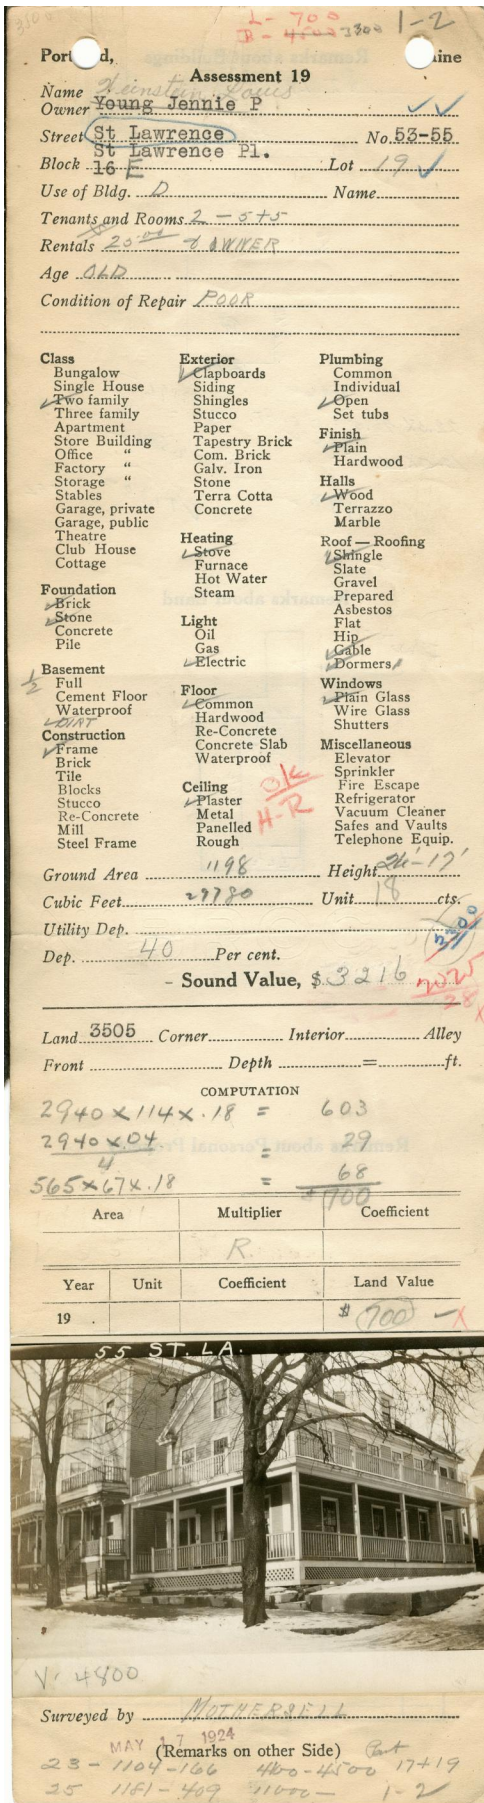 3500
L - 700
B - 4500 3300 1-2
Portland, Maine
Assessment 19
Name Heinstein Louis
Owner Young Jennie P
Street St Lawrence No. 53-55
St Lawrence Pl.
Block 16 E Lot 19
Use of Bldg. D Name
Tenants and Rooms 2 - 5+5
Rentals 20.00 & OWNER
Age OLD
Condition of Repair POOR
Class
Bungalow
Single House
Two family
Three family
Apartment
Store Building
Office "
Factory "
Storage "
Stables
Garage, private
Garage, public
Theatre
Club House
Cottage
Foundation
Brick
Stone
Concrete
Pile
Basement
1/2 Full
Cement Floor
Waterproof
DIRT
Construction
Frame
Brick
Tile
Blocks
Stucco
Re-Concrete
Mill
Steel Frame
Exterior
Clapboards
Siding
Shingles
Stucco
Paper
Tapestry Brick
Com. Brick
Galv. Iron
Stone
Terra Cotta
Concrete
Heating
Stove
Furnace
Hot Water
Steam
Light
Oil
Gas
Electric
Floor
Common
Hardwood
Re-Concrete
Concrete Slab
Waterproof
Ceiling
Plaster
Metal
Panelled
Rough
OK
H-R
Plumbing
Common
Individual
Open
Set tubs
Finish
Plain
Hardwood
Halls
Wood
Terrazzo
Marble
Roof — Roofing
Shingle
Slate
Gravel
Prepared
Asbestos
Flat
Hip
Gable
Dormers
Windows
Plain Glass
Wire Glass
Shutters
Miscellaneous
Elevator
Sprinkler
Fire Escape
Refrigerator
Vacuum Cleaner
Safes and Vaults
Telephone Equip.
Ground Area 1198 Height 24'-17'
Cubic Feet 29780 Unit 18 cts.
Utility Dep.
Dep. 40 Per cent.
- Sound Value, $ 3216
Land 3505 Corner Interior Alley
Front Depth = ft.
COMPUTATION
2940 x 114 x .18 = 603
2940 x 04 = 29
4
565 x 67 x .18 = 68
$ 700
Area Multiplier Coefficient
R.
Year Unit Coefficient Land Value
19 . $ 700
55 ST. LA.
V. 4800
Surveyed by MOTHERSELL
MAY 17 1924
(Remarks on other Side) Part
23 - 1104 - 166 400 - 4500 17+19
25 1181 - 409 11000 - 1-2